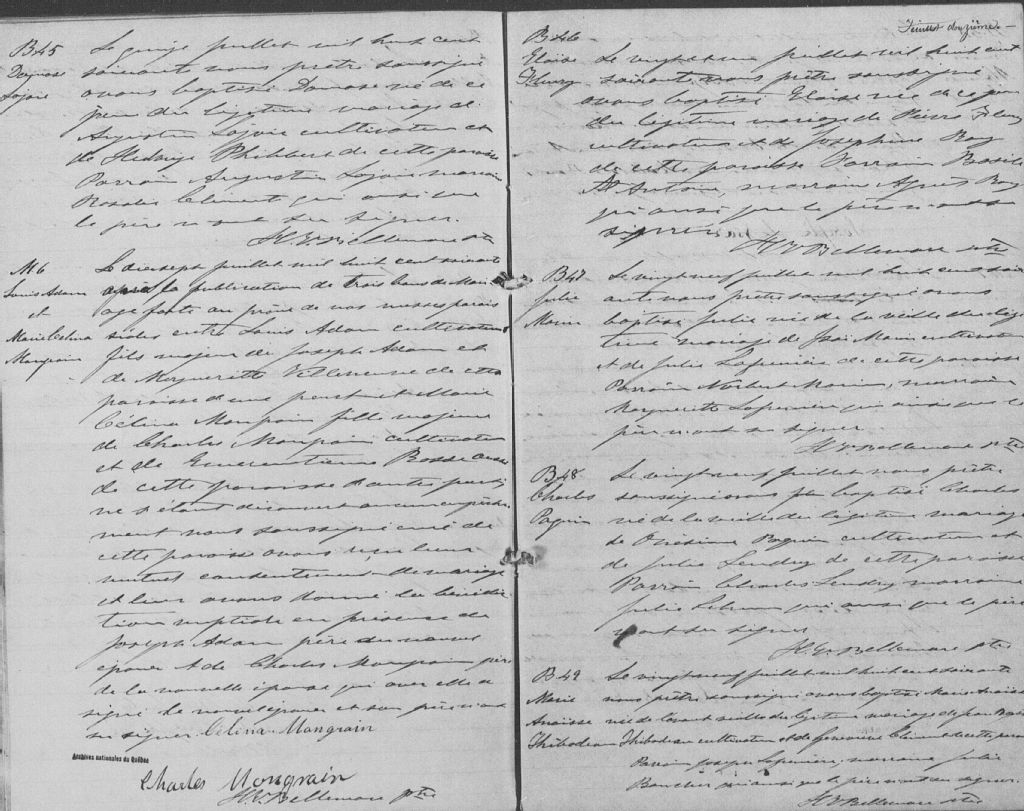 B45
Damase
Lajoie
Le quinze juillet mil huit cent
soixante nous prêtre soussigné
avons baptisé Damase né de ce
jour du légitime mariage de
Augustin Lajoie cultivateur et
de Hedwige Philibert de cette paroisse
Parrain Augustin Lajoie marraine
Rosalie Clément qui ainsi que
le père n'ont su signer.
Bellemare ptre
M6
Louis Adam
et
Marie Celina
Mongrain
Le dixsept juillet mil huit cent soixante
après la publication de trois bans de Mari
age faite au prône de nos messes parois
siales entre Louis Adam cultivateur
fils majeur de Joseph Adam et
de Marguerite Villeneuve de cette
paroisse d'une part; et Marie
Célina Mongrain fille majeure
de Charles Mongrain cultivateur
et de Emerentienne
de cette paroisse d'autre part;
ne s'étant découvert aucun empêche
ment nous soussigné curé de
cette paroisse avons reçu leur
mutuel consentement de mariage
et leur avons donné la bénédic
tion nuptiale en présence de
Joseph Adam père du nouvel
époux et de Charles Mongrain père
de la nouvelle épouse qui avec elle a
signé le nouvel époux et son père n'ont
su signer. Célina Mongrain
Archives nationales du Québec
Charles Mongrain
Bellemare ptre
Feuillet douzième
B46
Eloise
Fleury
Le vingt et un juillet mil huit cent
soixante nous prêtre soussigné
avons baptisé Eloise née de ce jour
du légitime mariage de Pierre Fleury
cultivateur et de Josephine Roy
de cette paroisse Parrain Basile
St Antoine, marraine Agnès Roy
qui ainsi que le père n'ont su
signer
Bellemare ptre
B47
Julie
Morin
Le vingt neuf juillet mil huit cent soix
ante nous prêtre soussigné avons
baptisé Julie née de la veille du légi
time mariage de Morin cultivateur
et de Julie de cette paroisse
Parrain Norbert Morin, marraine
Marguerite qui ainsi que le
père n'ont su signer.
Bellemare ptre
B48
Charles
Paquin
Le vingt neuf juillet nous prêtre
soussigné avons baptisé Charles
né de la veille du légitime mariage
de Onésime Paquin cultivateur et
de Julie Lendry de cette paroisse
Parrain Charles Lendry marraine
Julie qui ainsi que le père
n'ont su signer
Bellemare ptre
B49
Marie
Anaisse
Thibodeau
Le vingt neuf juillet mil huit cent soixante
nous prêtre soussigné avons baptisé Marie Anaisse
née de l'avant veille du légitime mariage de
Thibodeau cultivateur et de Genevieve de cette paroisse
Parrain Joseph marraine Julie
Boucher qui ainsi que le père n'ont su signer.
Bellemare ptre